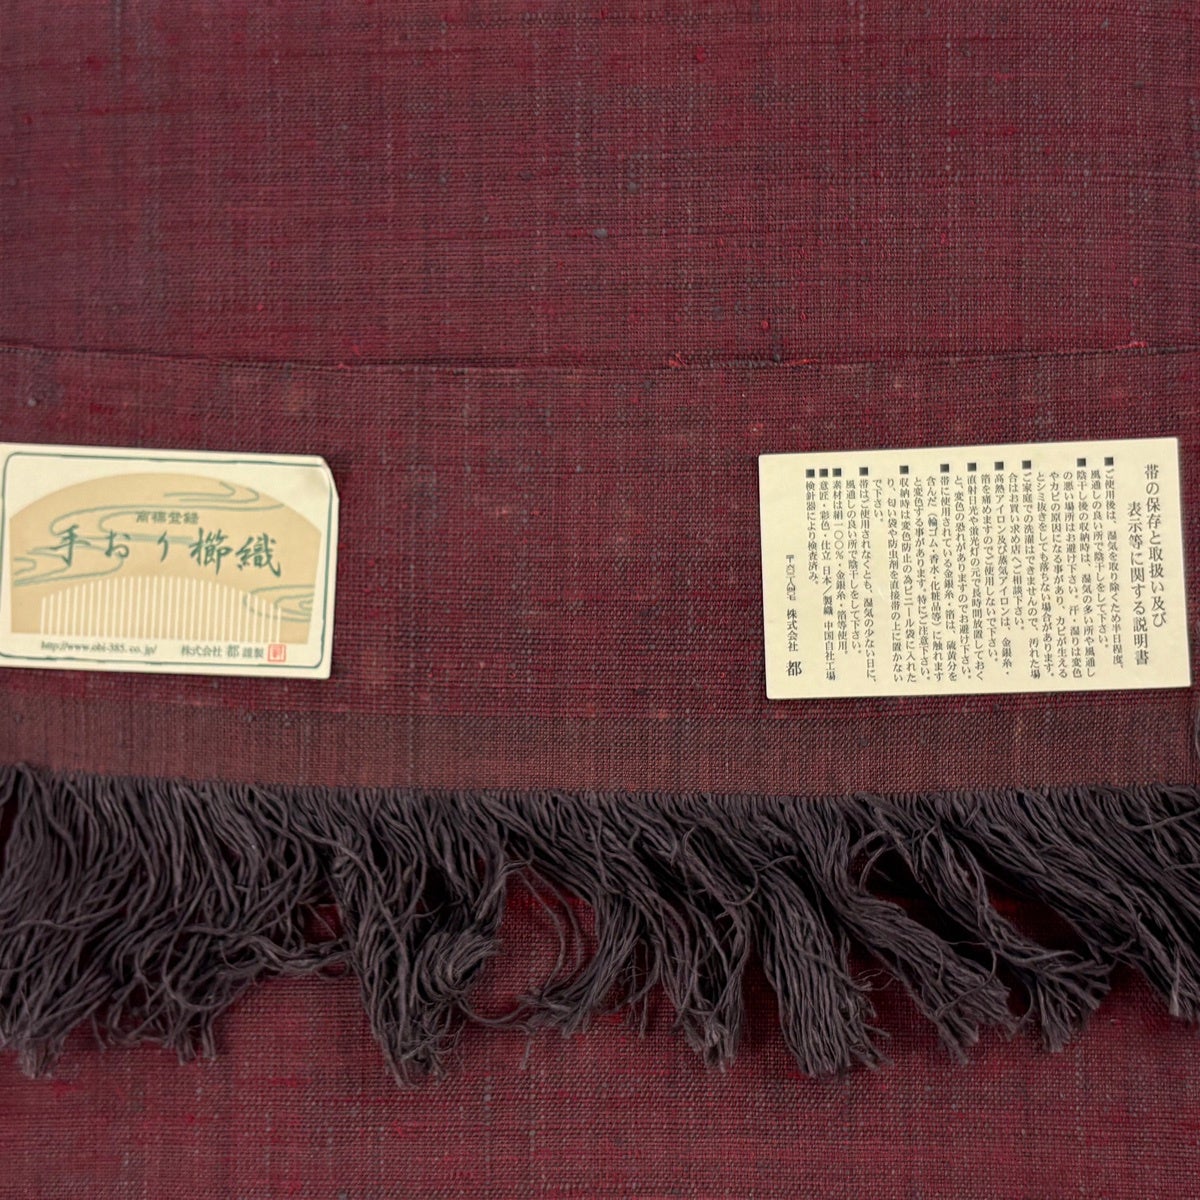 商標登録
手おり櫛織
http://www.obi-385.co.jp/
株式会社 都 謹製
帯の保存と取扱い及び
表示等に関する説明書
■ご使用後は、湿気を取り除くため半日程度、
風通しの良い所で陰干しをして下さい。
■陰干し後の収納時は、湿気の多い所や風通し
の悪い場所はお避け下さい。汗・湿りは変色
やカビの原因になる事があり、カビが生える
とシミ抜きをしても落ちない場合があります。
■ご家庭での洗濯はできませんので、汚れた場
合はお買い求め店へご相談下さい。
■高熱アイロン及び蒸気アイロンは、金銀糸・
箔を痛めますのでご使用しないで下さい。
■直射日光や蛍光灯の元で長時間放置しておく
と、変色の恐れがありますのでお避け下さい。
■帯に使用されている金銀糸・箔は、硫黄分を
含んだ（輪ゴム・香水・化粧品等）に触れます
と変色する事があります。特にご注意下さい。
■収納時は変色防止の為ビニール袋に入れた
り、匂い袋や防虫剤を直接帯の上に置かない
で下さい。
■帯はご使用されなくとも、湿気の少ない日に、
風通しの良い所で陰干しをして下さい。
■素材は絹一〇〇％、金銀糸・箔等使用。
■意匠・彩色・仕立 日本／製織 中国自社工場
■検針器により検査済み。
株式会社 都